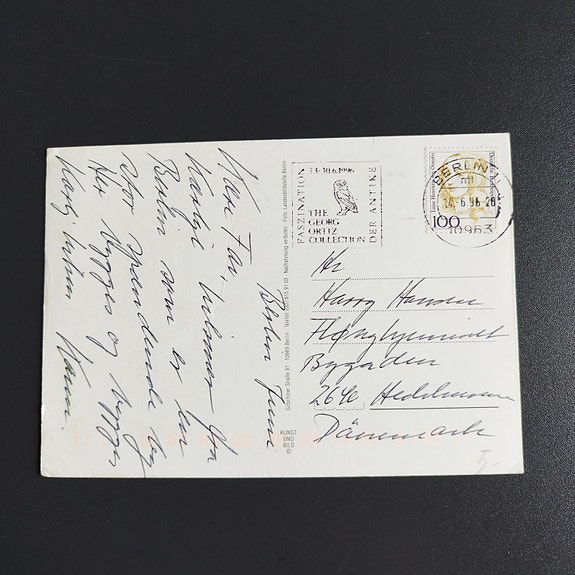 Berlin Juni
Kære Far, hilsner fra
Berlin som er en
spændende by
Her bygges og bygges
Kærlig hilsen
KUNST
UND
BILD
©
FASZINATION
DER ANTIKE
THE
GEORG
ORTIZ
COLLECTION
BERLIN
14.6.96-20
10963
100
Hr
Harry Hansen
Bygaden
2640 Hedehusene
Dänemark
5.-